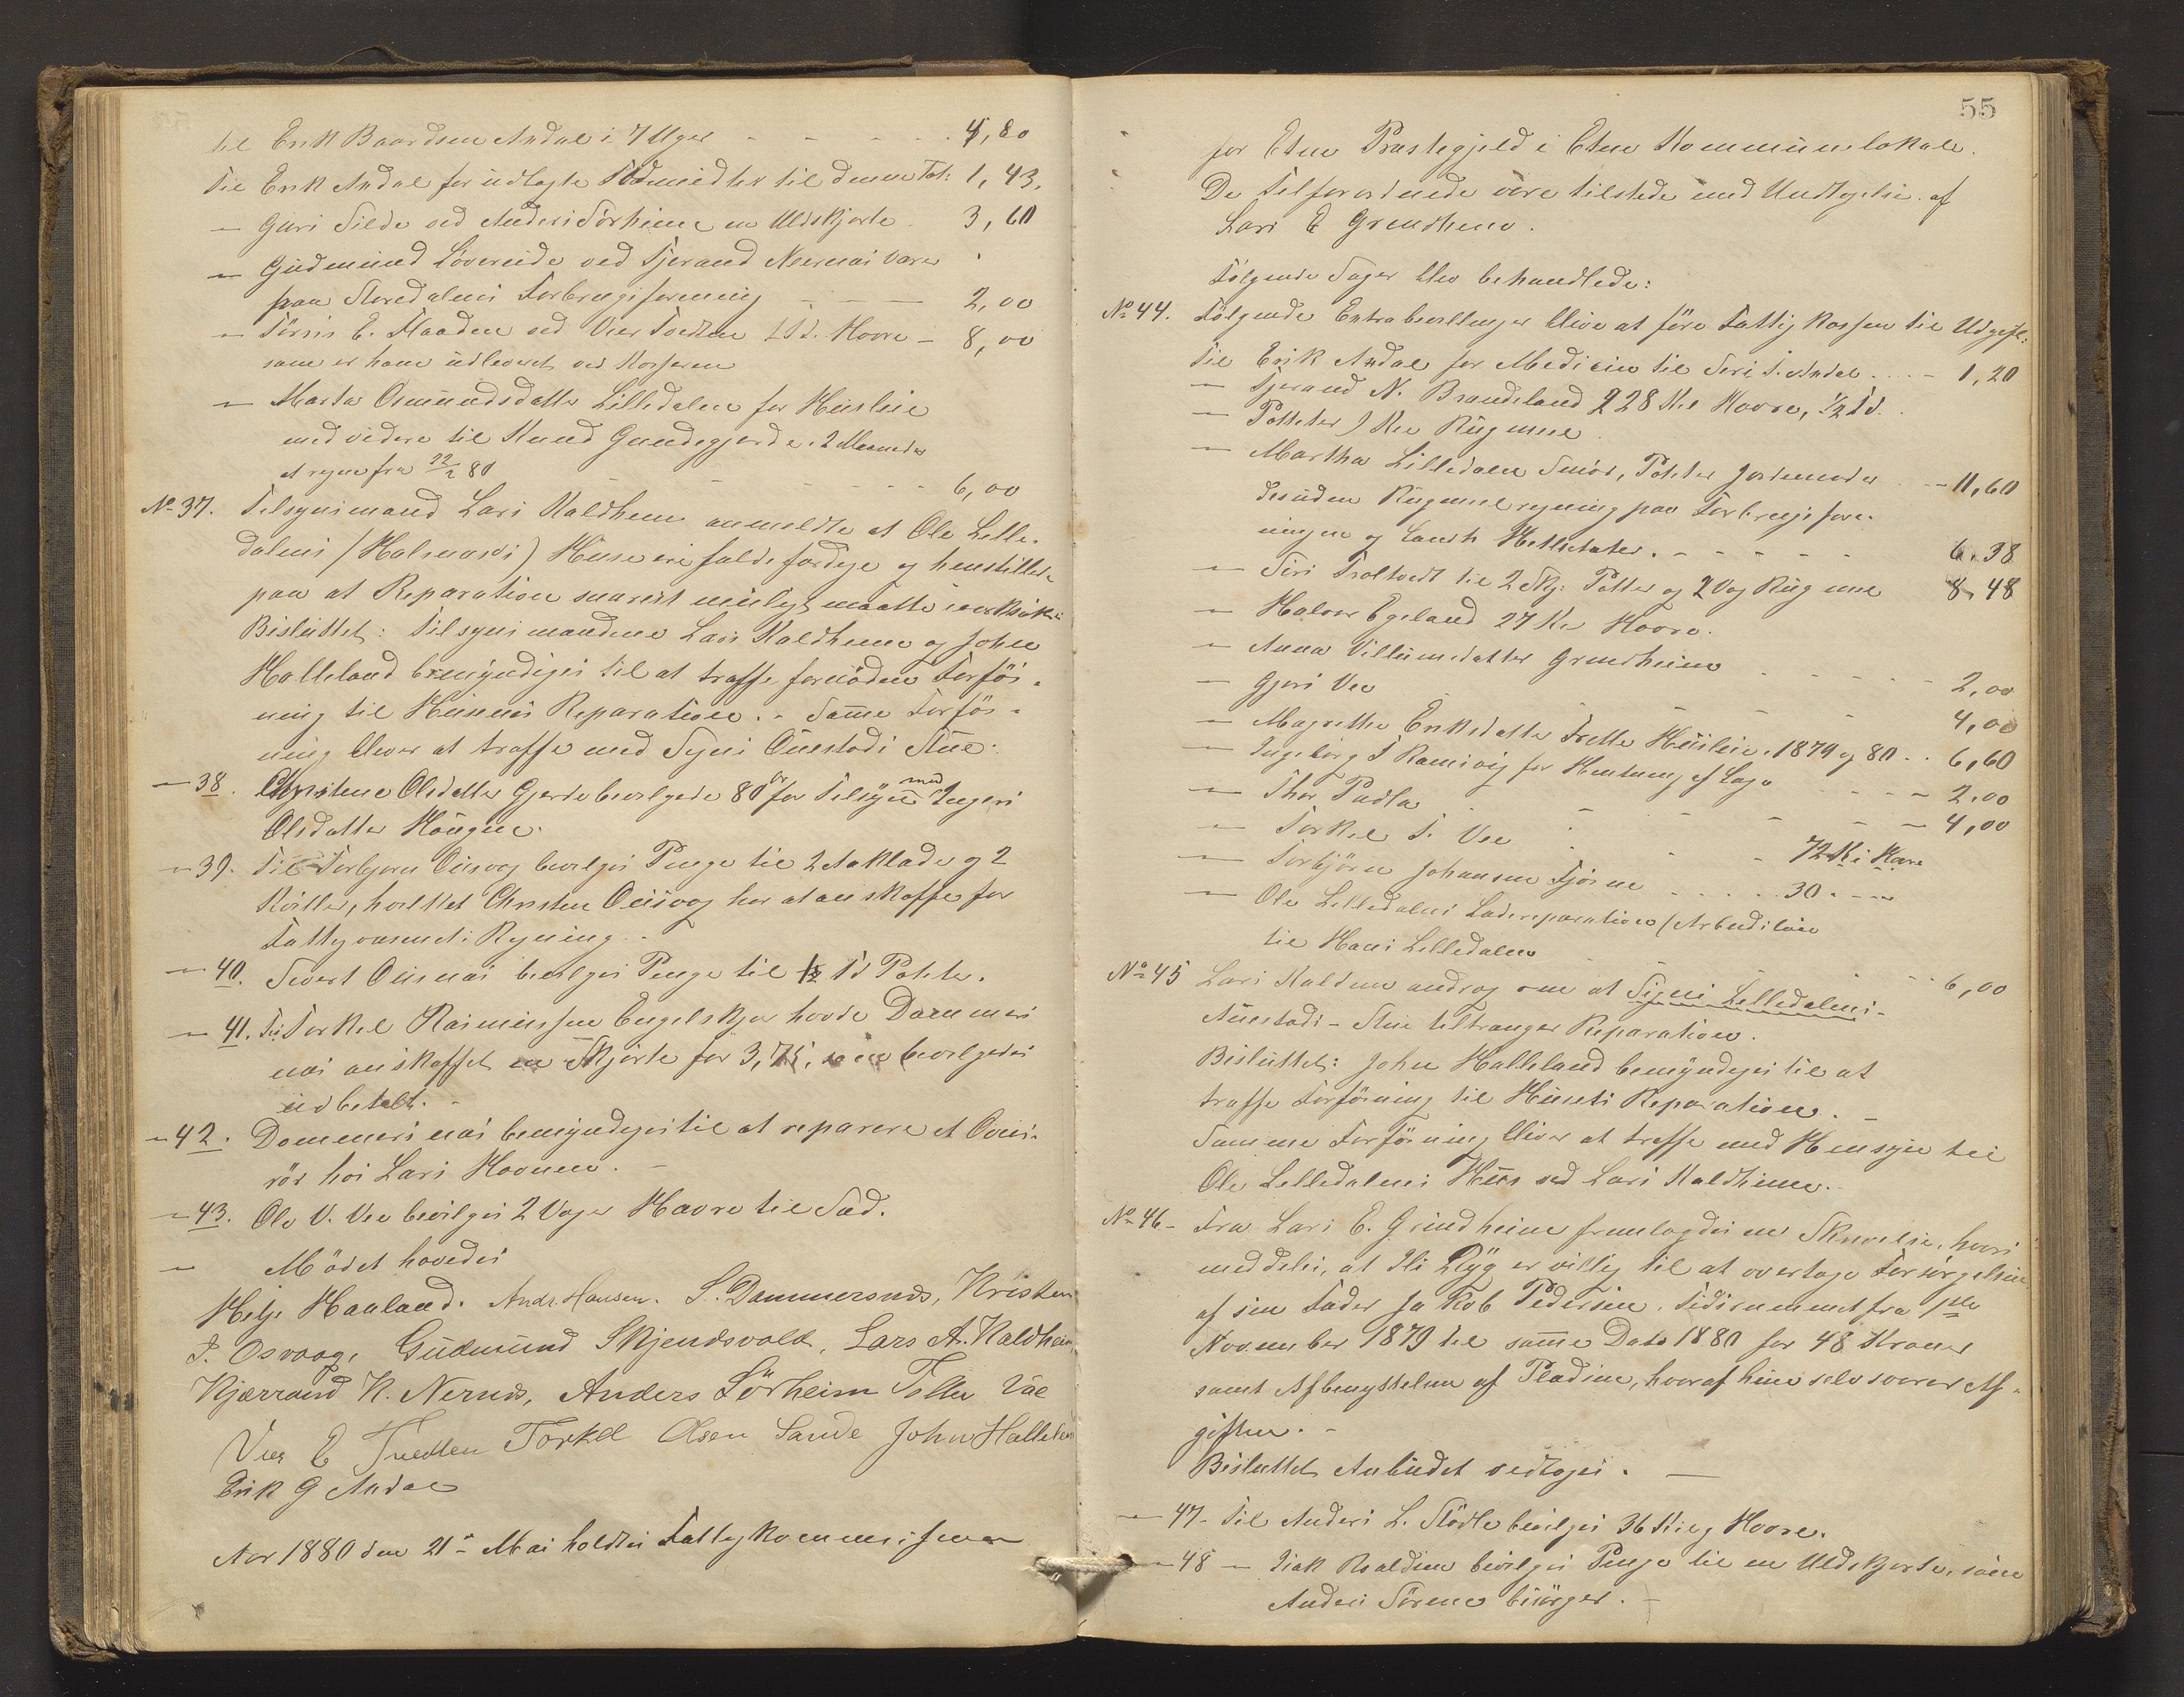 til Erik Baardsen Andal i 7 Uger - - - - 4,80
Til Erik Andal for udlagte Födmidler til denne Tot: 1,43.
— Guri Silde ved Anders Sörheim en Uldskjorte 3,60
— Gudmund Lövereide ved Tjerand Nernæs Varer
paa Stordalens Forbrugsforening - - - 2,00
— Törris E. Flaaden ved Vier Tvedten 1 Td. Havre - 8,00
som er ham udleveret ved Kasseren
— Marta Osmundsdatter Lilledalen for Husleie
med videre til Knud Gundegjerde. 2 Maaneder
at regne fra 22/2 80 - - - - 6,00
No 37. Tilsynsmand Lars Kaldheim anmeldte at Ole Lille-
dalens (Halsnæs) Huse ere faldefærdige og henstilles
paa at Reparation snarest muligt maatte iværksættes
Besluttet: Tilsynsmændene Lars Kaldheim og John
Halleland bemyndiges til at træffe fornöden Forföi-
ning til Husenes Reparation. - Samme Forföi-
ning bliver at træffe med Signi Ånestads Stue.
— 38. Christine Olsdatter Gjerde bevilgede 80 ör for Tilsyn med Ingeri
Olsdatter Haugen.
— 39. Til Torbjörn Osvaag bevilges Penge til 2 Aaklade og 2
Kviller, hvilket Christen Osvaag har at anskaffe for
Fattigvæsenets Regning.
— 40. Sivert Ousnæs bevilges Penge til ½ Td Poteter.
— 41. Til Torkel Rasmussen Engelskjær havde Dammers-
næs anskaffet en Skjorte for 3,75, som bevilgedes
udbetalt. -
— 42. Dammersnæs bemyndiges til at reparere et Ovns-
rör hos Lars Hovnen. -
— 43. Ole V. Vee bevilges 2 Voger Havre til Sæd.
— Mödet hævedes
Helje Haaland. Andr. Hansen. S. Dammersnæs, Kristen
T. Osvaag, Gudmund Skjendsvold, Lars A. Kaldheim,
Kjærrand K. Nernæs, Anders Sörheim
Vier E Tvedten Torkel Olsen Sande John Halleland
Erik G Andal
Aar 1880 den 21de Mai holdtes Fattigkommission
55
for Etne Præstegjeld i Etne Kommunelokale.
De Tilforordnede vare tilstede med Undtagelse af
Lars E Grindheim.
Fölgende Sager blev behandlede:
No 44. Fölgende Extrabevillinger blive at före Fattigkassen til Udgift:
Til Erik Andal for Medicin til Siri T. Andal - - 1,20
— Tjerand N. Brandeland 228 Kil Havre, ½ Td.
— Poteter, Kil Rugmel
— Martha Lilledalen Smör, Poteter Jordmoder - - 11,60
desuden Rugmel regning paa Forbrugsfore-
ningen og Laurits Hetlestater. - - - - - 6.38
— Siri Tveltvedt til 2 Skj: Poteter og 2 Vog Rugmel 8,48
— Halvor Egeland 27 Kil Havre.
— Anna Villumsdatter Grindheim - - - - - 2,00
— Gjori Vee - - - - 4,00
— Magrethe Eriksdatter Fritte Husleie. 1879 og 80 . . 6,60
— Ingeborg T Ramsvig for Hentning af Læge - - - - 2.00
— Thor Padla - - - - - 4,00
— Torkel T. Vee - - - - 72 Kil Havre
— Torbjörn Johansen Fjösne . . . . . 30 . —
— Ole Lilledalens Ladereparation (Arbeidslön
til Hans Lilledalen - - - - 6,00
No 45 Lars Kaldheim androg om at Signi Lilledalens-
Ånestads- Stue tiltrænger Reparation.
Besluttet: John Halleland bemyndiges til at
træffe Forföining til Husets Reparation. -
Samme Forföining bliver at træffe med Hensyn til
Ole Lilledalens Hus ved Lars Kaldheim.
No 46 - Fra Lars E. Grindheim fremlagdes en Skrivelse, hvori
meddeles, at Ili Flyg er villig til at overtage Forsörgelsen
af sin Fader Jakob Pedersen. Tidsrummet fra 1ste
November 1879 til samme Dato 1880 for 48 Kroner
samt Afbenyttelsen af Pladsen, hvoraf hun selv svarer Af-
gifter. -
Besluttet Anbudet vedtages. —
— 47 - Til Anders L. Stödle bevilges 36 Kilog Havre.
— 48 — Isak Roaldsen bevilges Penge til en Uldskjorte, som
Anders Sörheim besörger. -